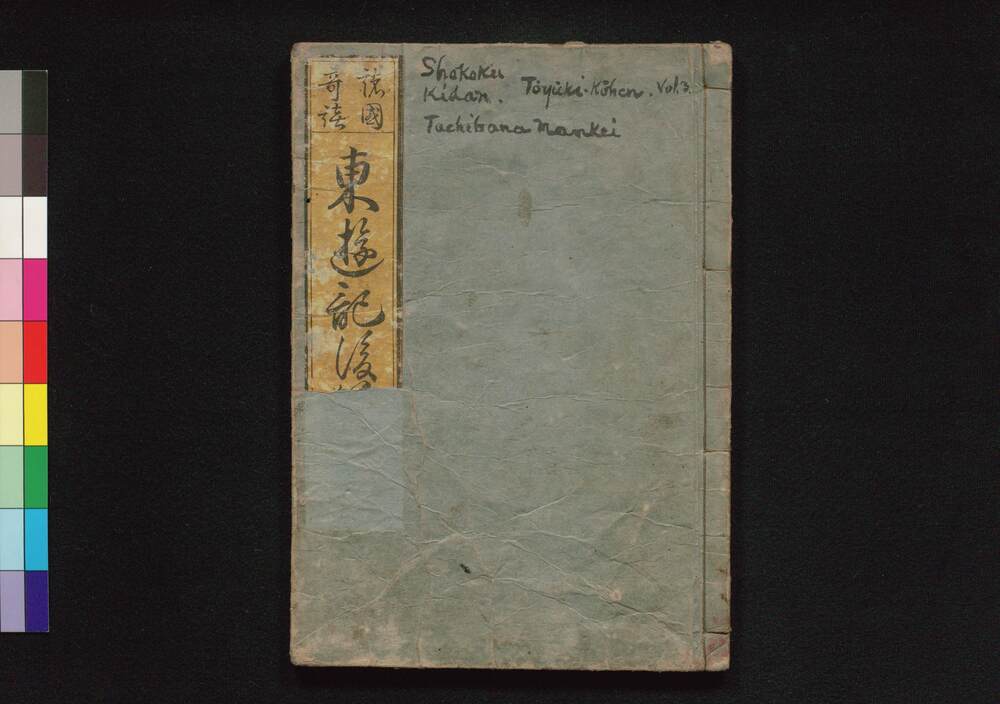 諸國
奇談
東遊記後
Shokoku
Kidan.
Tōyūki-Kōhen. Vol.3.
Tachibana Nankei